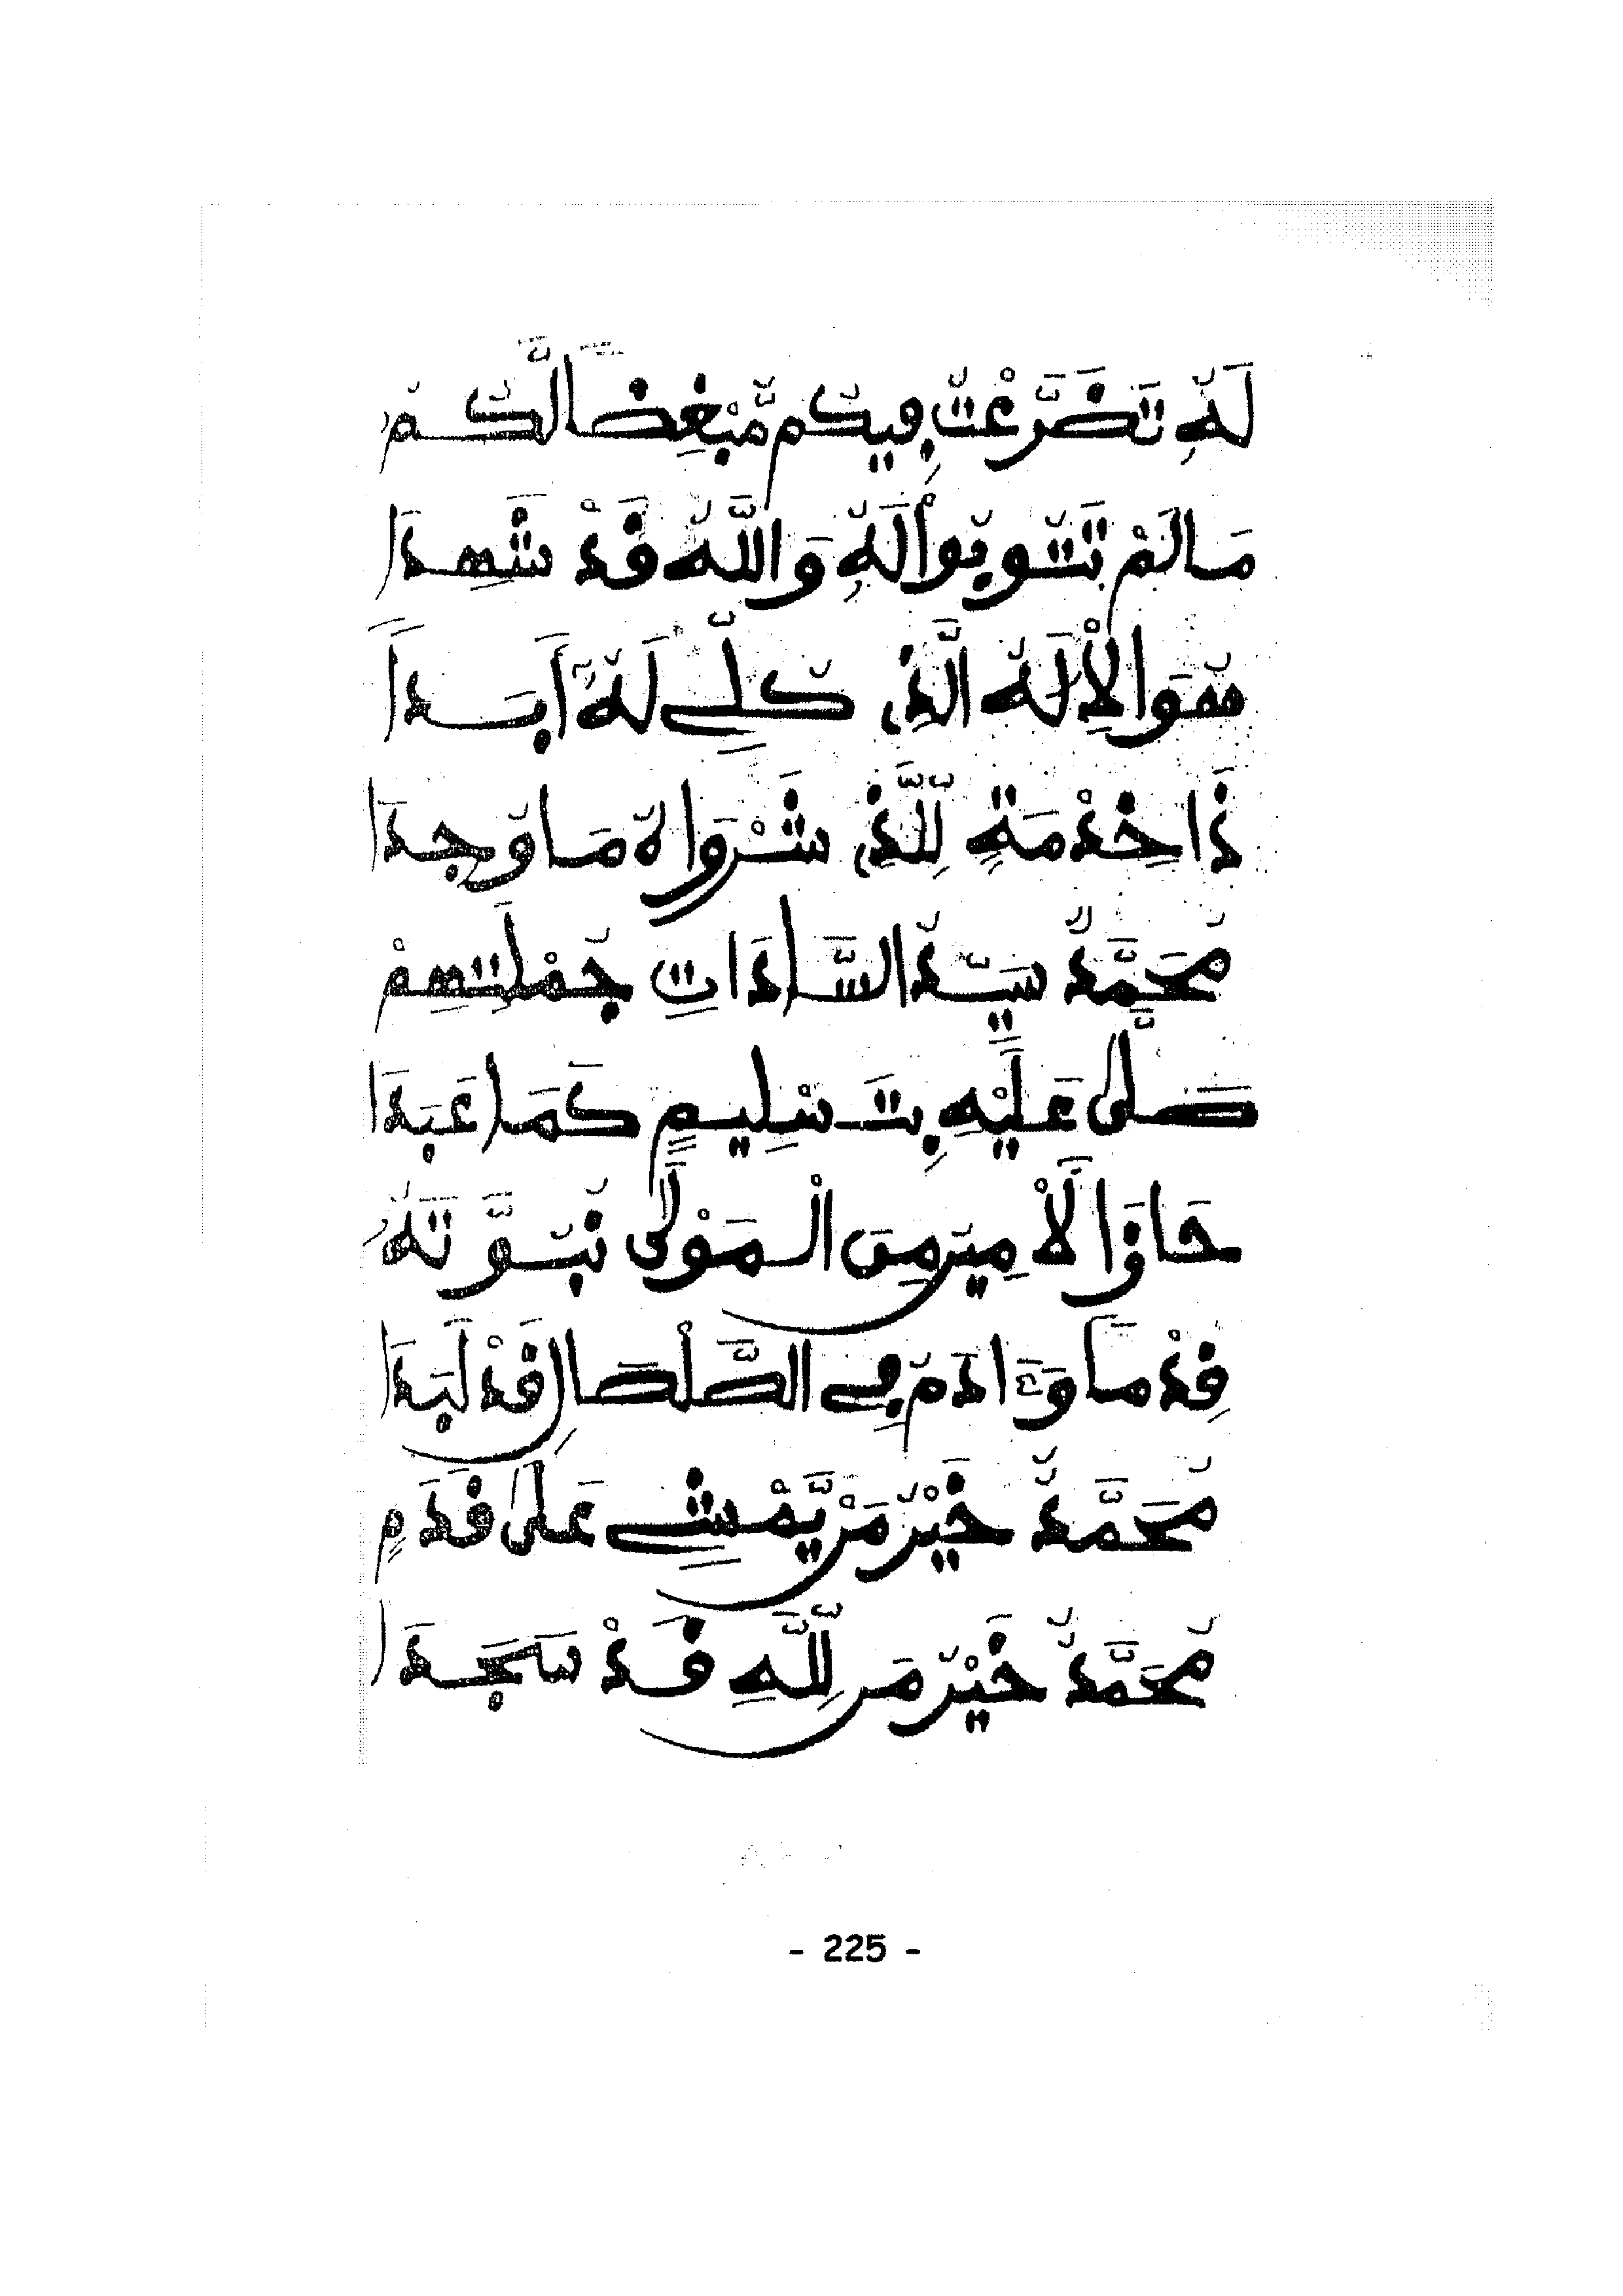 لَهُ تَضَرَّعْتُ فِيكُمُ مُّبْغِضًا لَّكُمُ
مَا لَمْ تَتُوبُواْ لَهُ وَاللَّهُ قَدْ شَهِدَا
هُوَ الْإِلَهُ الَّذِي كُلِّي لَهُ أَبَدًا
ذَا خِدْمَةٍ لِلَّذِي شَرْوَاهُ مَا وُجِدَا
مُحَمَّدٌ سَيِّدُ السَّادَاتِ جُمْلَتِهِمْ
صَلَّى عَلَيْهِ بِتَسْلِيمٍ كَمَا عَبَدَا
حَاذَا لَأَمِينَ مِنَ الْمَوْلَى نُبُوَّتَهُ
قِدْمًا وَءَادَمُ فِي الصَّلْصَالِ قَدْ لَبَدَا
مُحَمَّدٌ خَيْرُ مَنْ يَّمْشِي عَلَى قَدَمٍ
مُحَمَّدٌ خَيْرُ مَن لِلَّهِ قَدْ سَجَدَا
- 225 -